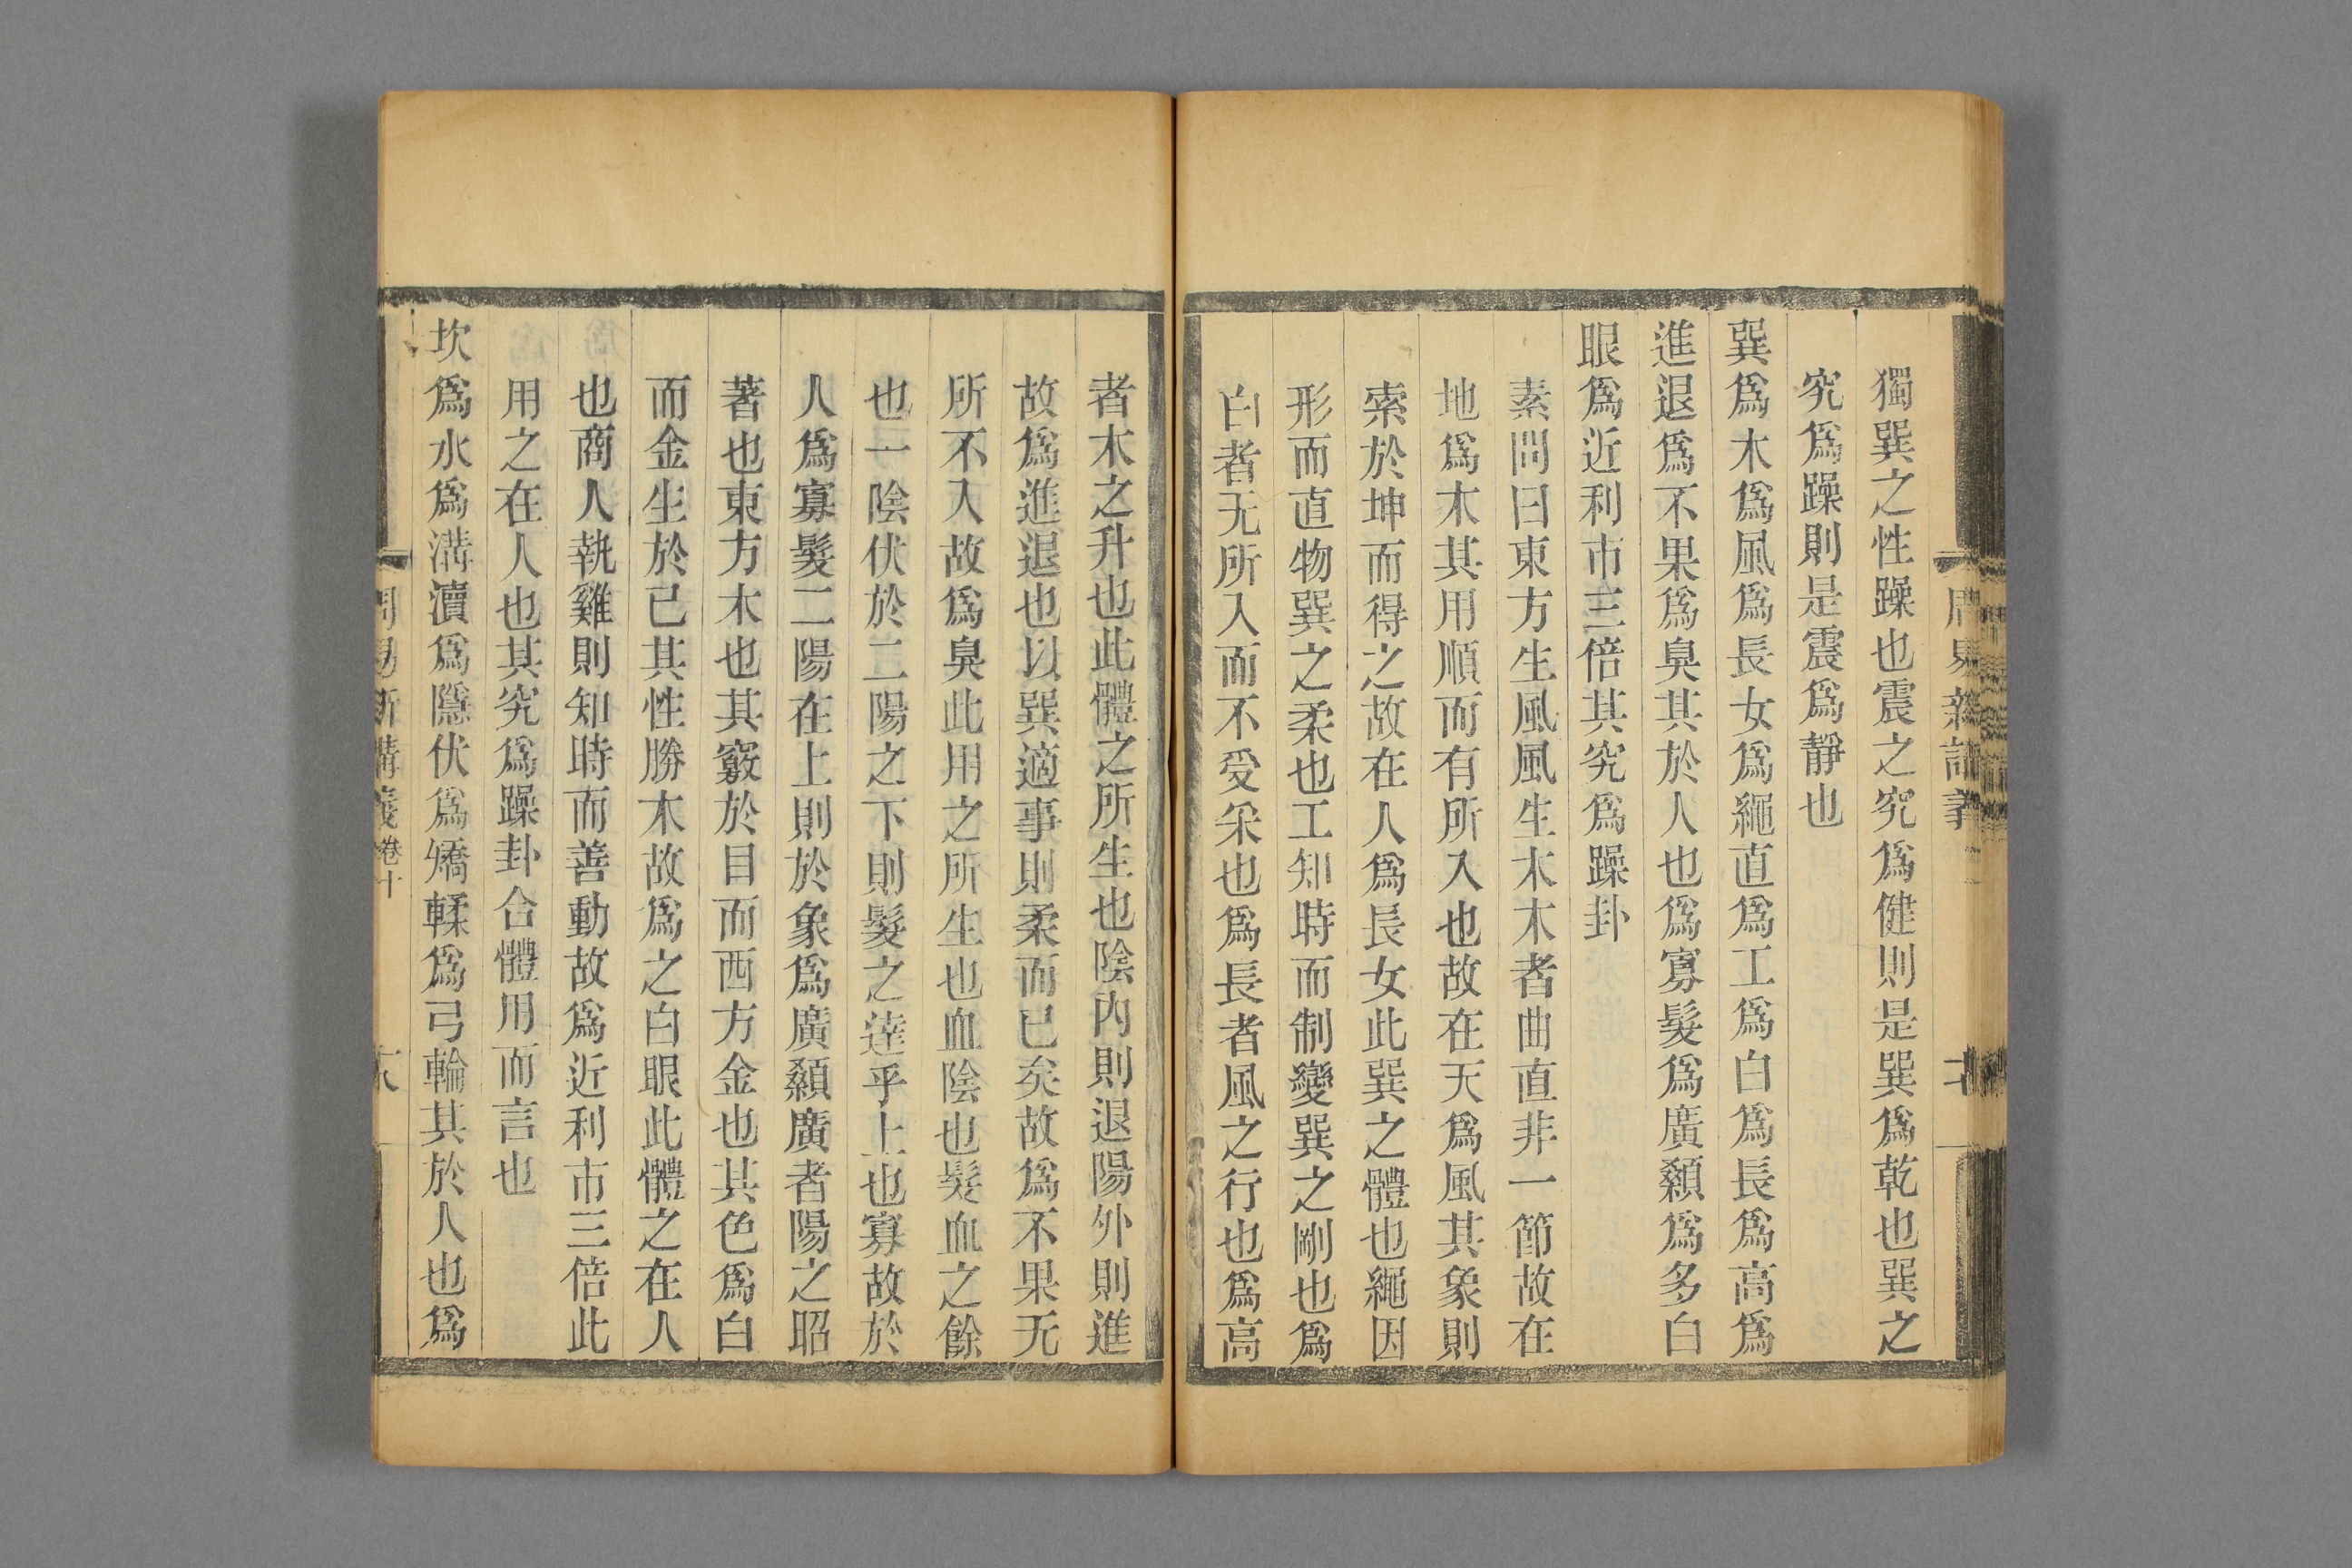 獨巽之性躁也震之究爲健則是巽爲乾也巽之
究爲躁則是震爲靜也
巽爲木爲風爲長女爲繩直爲工爲白爲長爲高爲
進退爲不果爲臭其於人也爲寡髮爲廣顙爲多白
眼爲近利市三倍其究爲躁卦
素問曰東方生風風生木木者曲直非一節故在
地爲木其用順而有所入也故在天爲風其象則
索於坤而得之故在人爲長女此巽之體也繩因
形而直物巽之柔也工知時而制變巽之剛也爲
白者无所入而不受采也爲長者風之行也爲高
者木之升也此體之所生也陰內則退陽外則進
故爲進退也以巽適事則柔而已矣故爲不果无
所不入故爲臭此用之所生也血陰也髮血之餘
也一陰伏於二陽之下則髮之逹乎上也寡故於
人爲寡髮二陽在上則於象爲廣顙廣者陽之昭
著也東方木也其竅於目而西方金也其色爲白
而金生於己其性勝木故爲之白眼此體之在人
也商人執雞則知時而善動故爲近利市三倍此
用之在人也其究爲躁卦合體用而言也
坎爲水爲溝瀆爲隱伏爲矯輮爲弓輪其於人也爲
周易新講義卷十